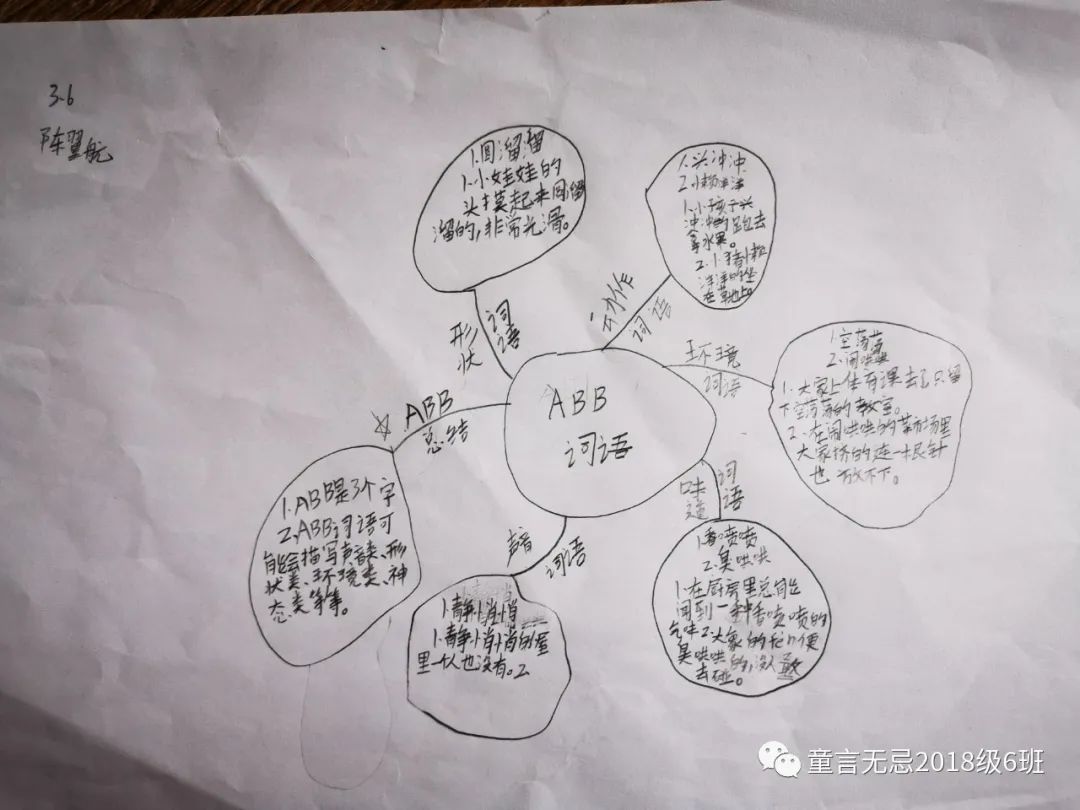 3.6
陈翼航
ABB
词语
形状
词语
1.圆溜溜
1.小娃娃的
头摸起来圆溜
溜的,非常光滑。
动作
词语
1.兴冲冲
2.小懒洋洋
1.小孩子兴
冲冲的跑去
拿水果。
2.小猪懒
洋洋的坐
在草地上。
环境
词语
1.空荡荡
2.闹哄哄
1.大家上体育课去了只留
下空荡荡的教室。
2.在闹哄哄的菜市场里
大家挤的连一根针
也放不下。
味道
词语
1.香喷喷
2.臭哄哄
1.在厨房里总能
闻到一种香喷喷的
气味2.大象的大便
臭哄哄的,没人敢
去碰。
声音
词语
1.静悄悄
1.静悄悄的屋
里一个人也没有。2
ABB
总结
1.ABB是3个字
2.ABB词语可
能会描写声音类、形
状类、环境类、神
态类等等。
童言无忌2018级6班